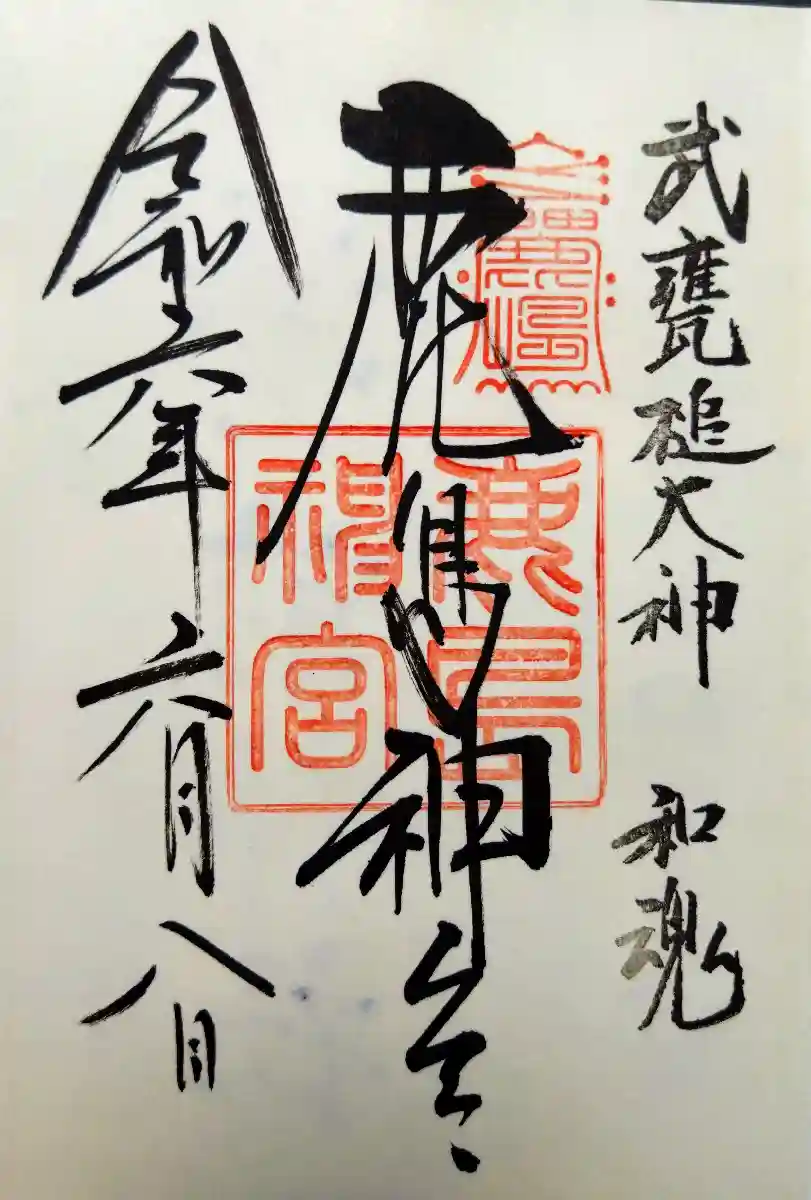 武甕槌大神 和魂
鹿島神宮
鹿島神宮
令和六年六月八日